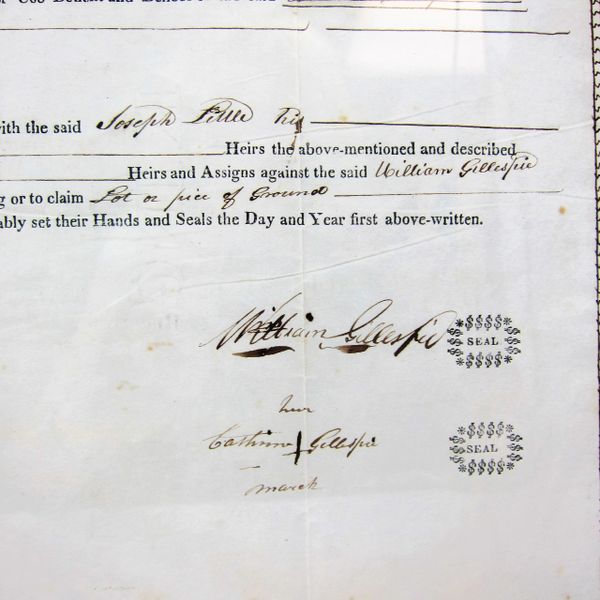 with the said Joseph Little his
Heirs the above-mentioned and described
Heirs and Assigns against the said William Gillespie
g or to claim Lot or pice of Ground
ably set their Hands and Seals the Day and Year first above-written.
William Gillespie
$$$$
SEAL
$$$$
her
Cathrine + Gillespie
mark
$$$$
SEAL
$$$$